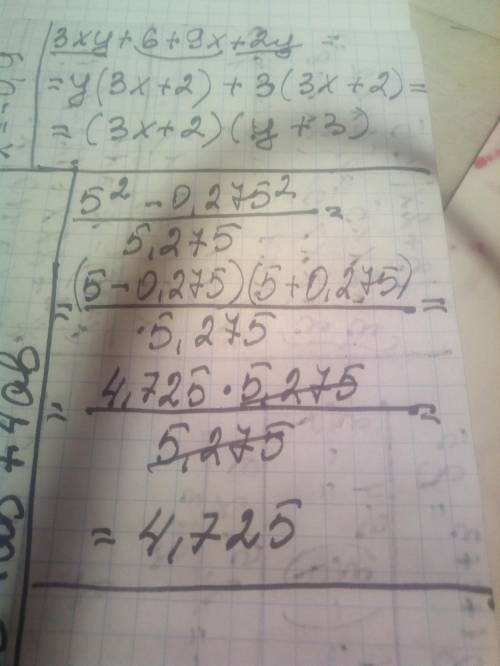 3xy + 6 + 9x + 2y =
= y(3x+2) + 3(3x+2) =
= (3x+2)(y+3)
5² - 0,275² / 5,275 =
= (5-0,275)(5+0,275) / 5,275 =
= 4,725 · 5,275 / 5,275 =
= 4,725
+ 4ab